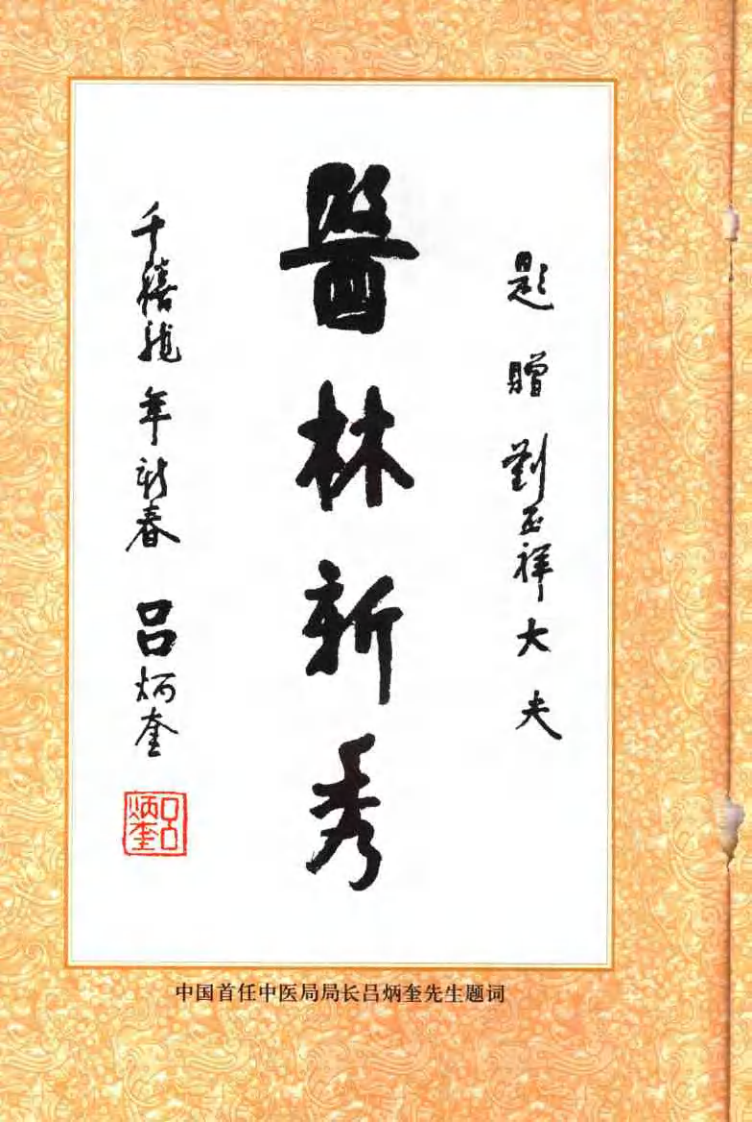 題贈劉玉祥大夫
醫林新秀
千禧龍年新春 吕炳奎
吕炳奎
中国首任中医局局长吕炳奎先生题词